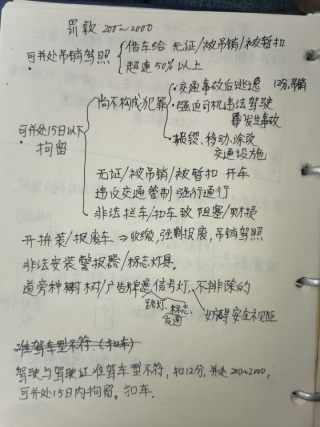 罚款 200~2000
可并处吊销驾照 { 借车给 无证/被吊销/被暂扣
超速50%以上
可并处15日以下拘留 { 尚不构成犯罪 { ·交通事故后逃逸 12分,吊销
·强迫司机违法驾驶
发生事故
·损毁、移动、涂改
交通设施
无证/被吊销/被暂扣 开车
违反交通管制 强行通行
非法拦车/扣车致 阻塞/财损
开拼装/报废车 → 收缴,强制报废,吊销驾照
非法安装警报器/标志灯具。
道旁种树/广告牌 信号灯、不排除的
路灯、标志、交通
妨碍安全视距
准驾车型不符.(扣车)
驾驶与驾驶证准驾车型不符,扣12分,并处200~2000,
可并处15日内拘留,扣车.